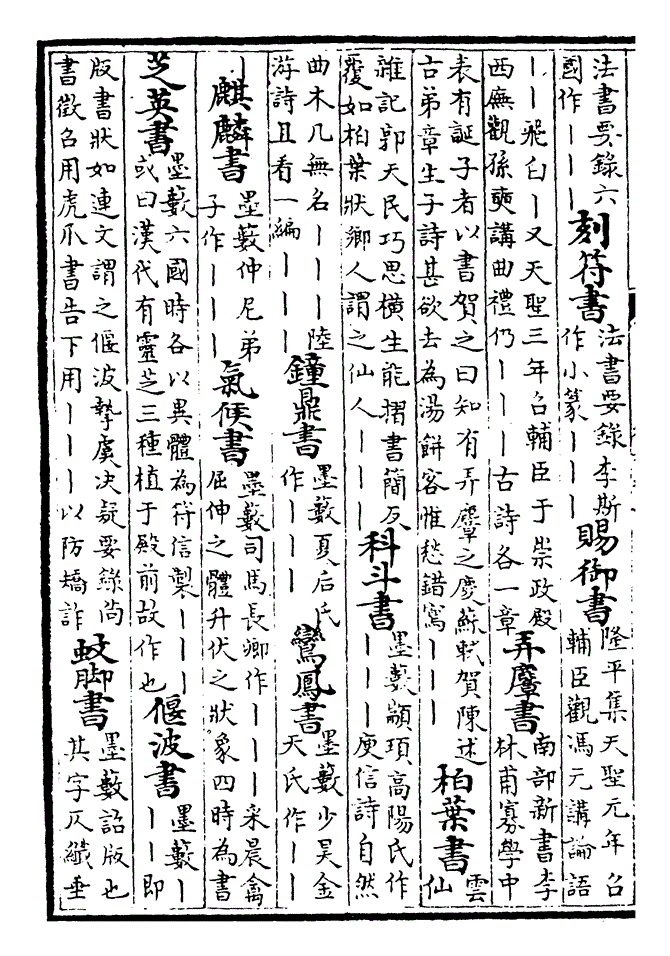 法書要錄六國作丨丨丨刻符書法書要錄李斯作小篆丨丨丨賜御書隆平集天聖元年召輔臣觀馮元講論語
丨丨飛白丨又天聖三年召輔臣于崇政殿西廡觀孫奭講曲禮仍丨丨古詩各一章弄麞書南部新書李林甫寡學中
表有誕子者以書賀之曰知有弄麞之慶蘇軾賀陳述古弟章生子詩甚欲去為湯餅客惟愁錯寫丨丨丨栢葉書雲仙
雜記郭天民巧思橫生能摺書簡反覆如栢葉狀鄉人謂之仙人丨丨丨科斗書墨藪顓頊高陽氏作丨丨丨庾信詩自然
曲木几無名丨丨丨陸游詩且看一編丨丨丨鐘鼎書墨藪夏后氏作丨丨丨鸞鳳書墨藪少昊金天氏作丨丨
丨麒麟書墨藪仲尼弟子作丨丨丨氣候書墨藪司馬長卿作丨丨丨采晨禽屈伸之體升伏之狀象四時為書
芝英書墨藪六國時各以異體為符信製丨丨丨或曰漢代有靈芝三種植于殿前故作也偃波書墨藪丨丨丨即
版書狀如連文謂之偃波摯虞決疑要錄尚書徵召用虎爪書告下用丨丨丨以防矯詐蚊脚書墨藪詔版也其字仄纖垂